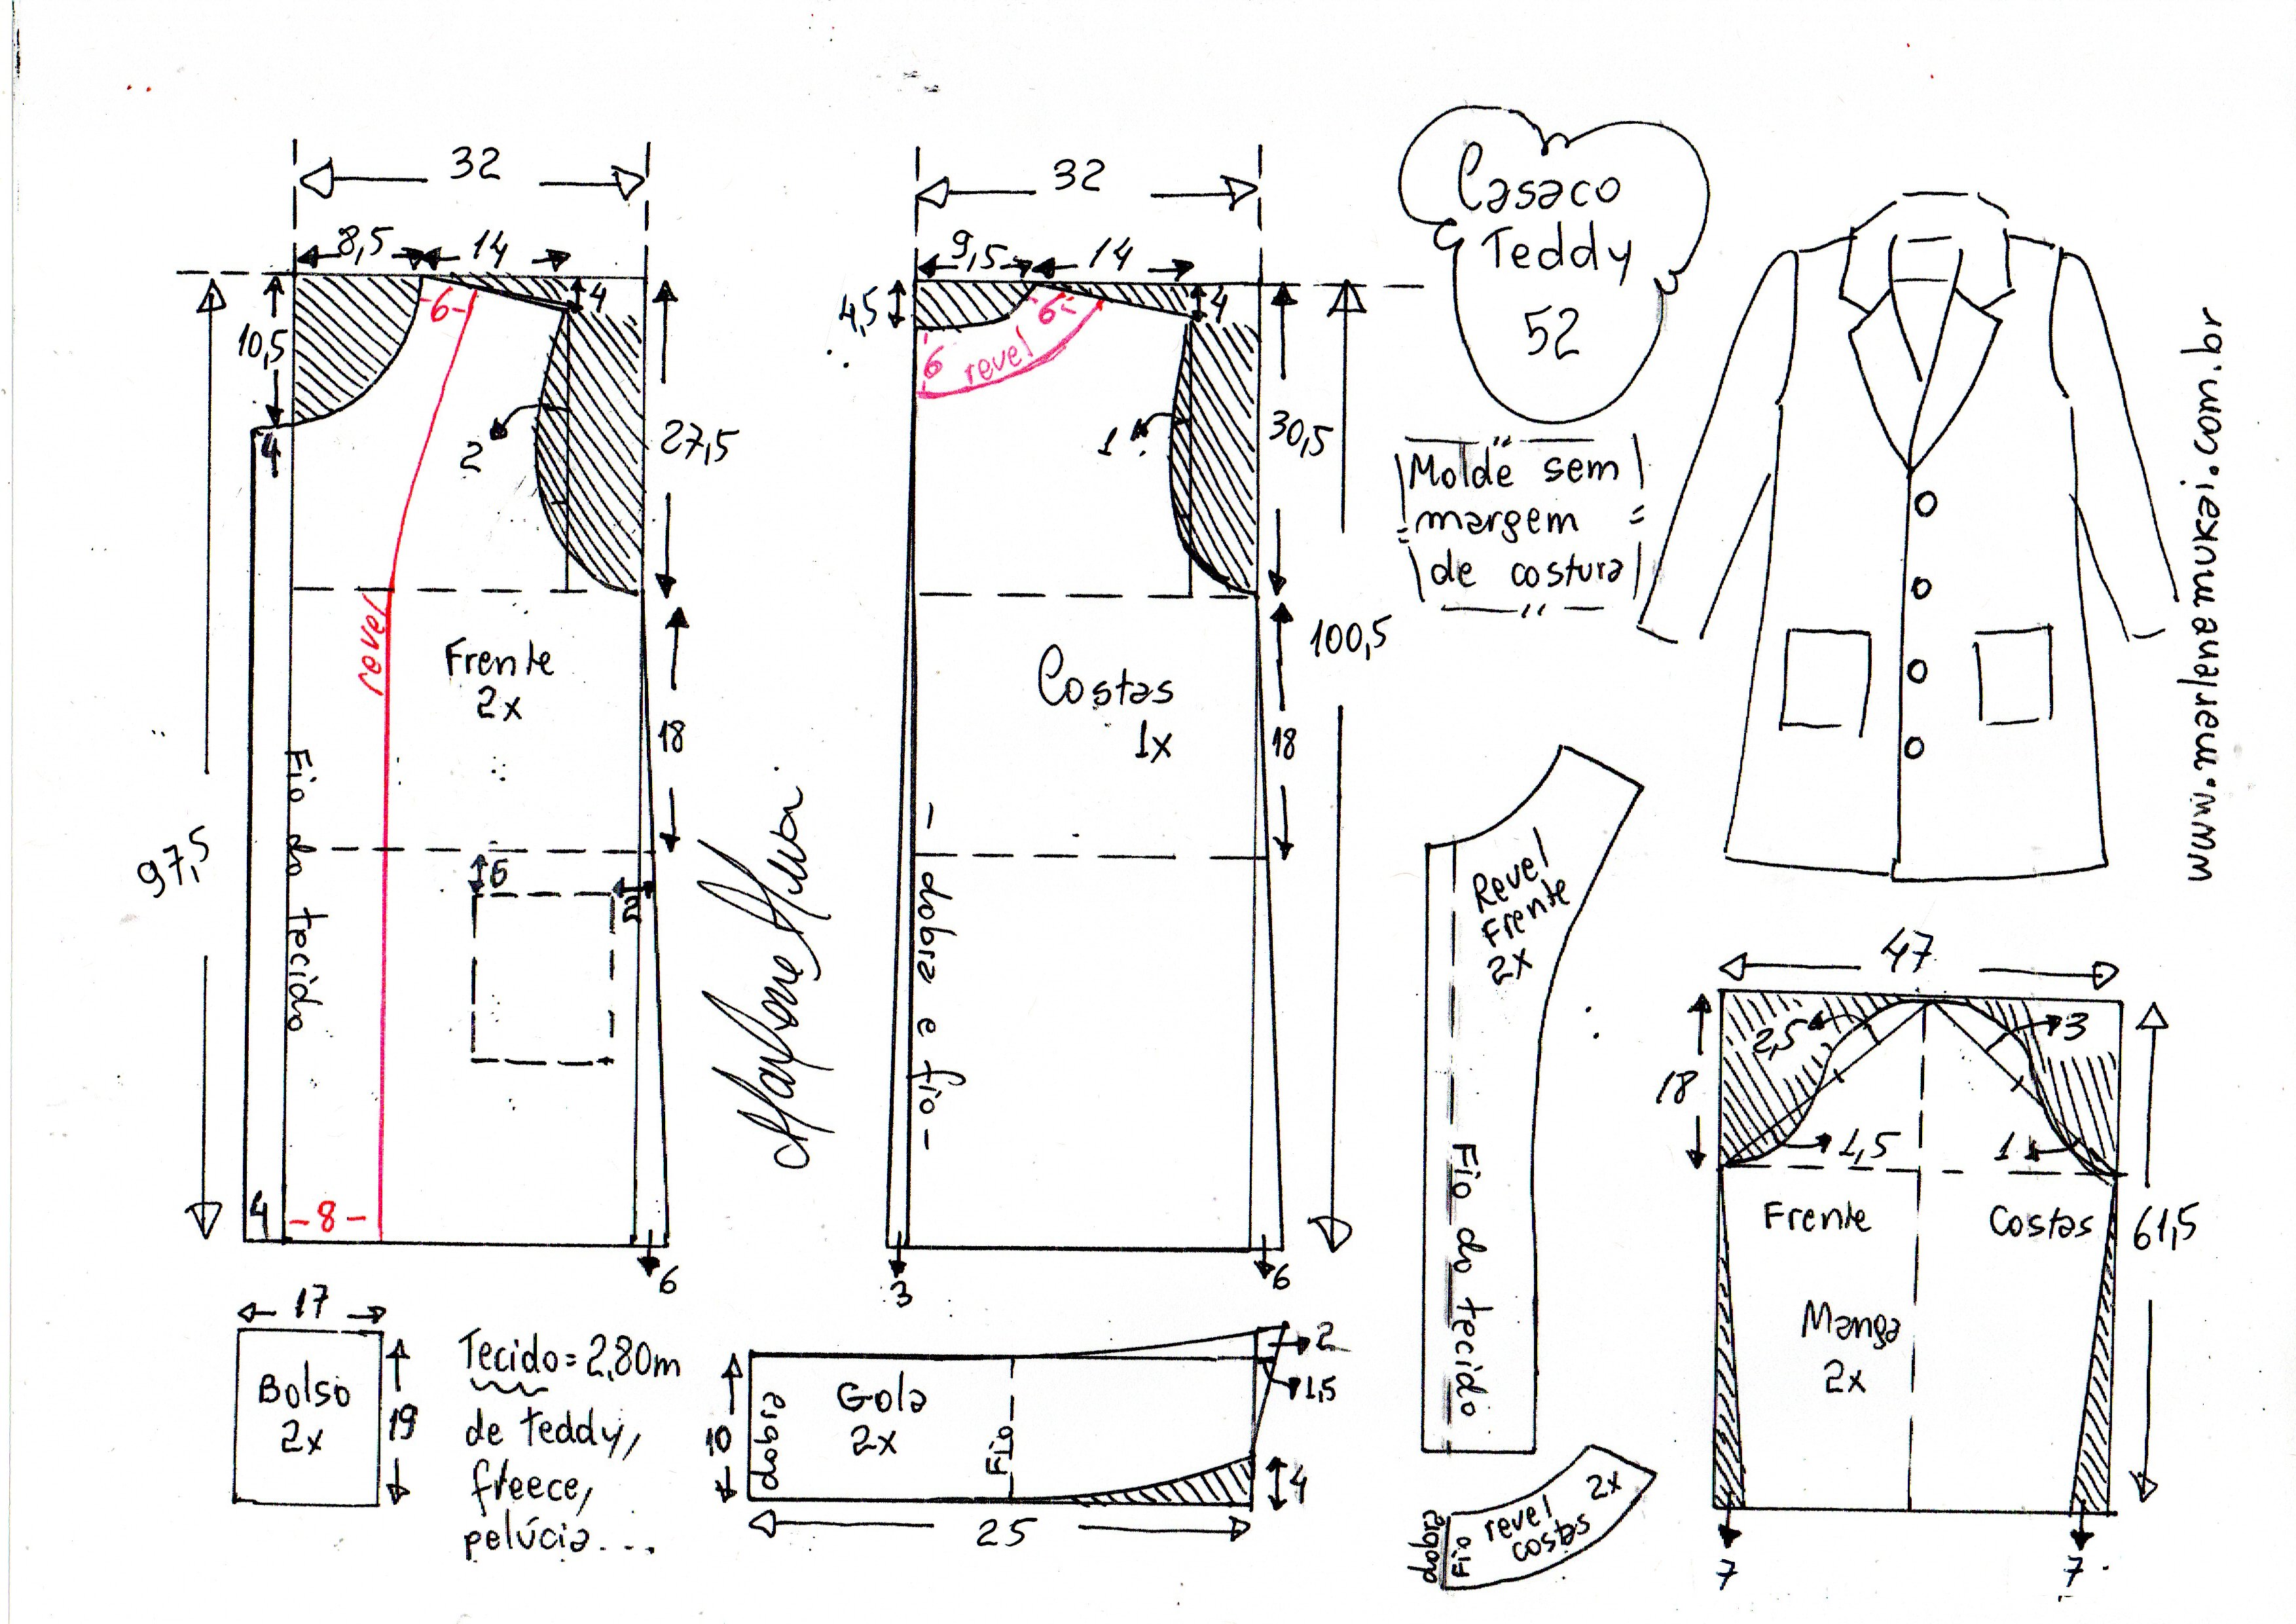 32
8,5
14
4
-6-
10,5
4
2
27,5
revel
Frente
2x
18
97,5
Fio do tecido
6
2
4
-8-
6
32
9,5
14
4
4,5
6
6
revel
1
30,5
Costas
1x
100,5
18
- dobra e fio -
3
6
Casaco
Teddy
52
Molde sem
margem
de costura
www.marlenemukai.com.br
Revel
Frente
2x
Fio do tecido
47
2,5
3
18
1,5
1
Frente
Costas
61,5
Manga
2x
7
7
17
Bolso
2x
19
Tecido = 2,80m
de teddy,
freece,
pelúcia...
10
dobra
Gola
2x
Fio
2
1,5
4
25
dobra
Fio
revel
costas
2x